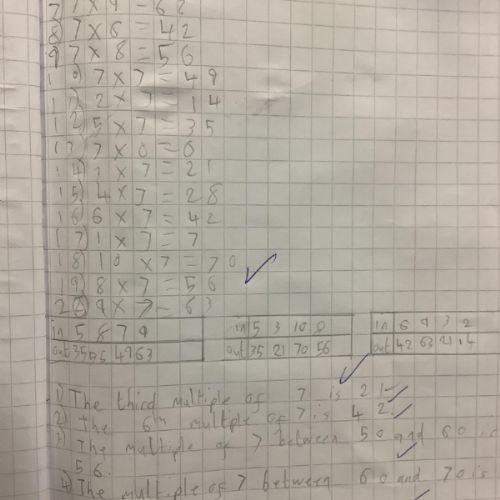 7) 7 x 9 = 63
8) 7 x 6 = 42
9) 7 x 8 = 56
10) 7 x 7 = 49
11) 2 x 7 = 14
12) 5 x 7 = 35
13) 7 x 0 = 0
14) 3 x 7 = 21
15) 4 x 7 = 28
16) 6 x 7 = 42
17) 1 x 7 = 7
18) 10 x 7 = 70
19) 8 x 7 = 56
20) 9 x 7 = 63
in 5 8 7 9
out 35 56 49 63
in 5 3 10 8
out 35 21 70 56
in 6 9 3 2
out 42 63 21 14
1) The third multiple of 7 is 21
2) The 6th multiple of 7 is 42
3) The multiple of 7 between 50 and 60 is
56.
4) The multiple of 7 between 60 and 70 is